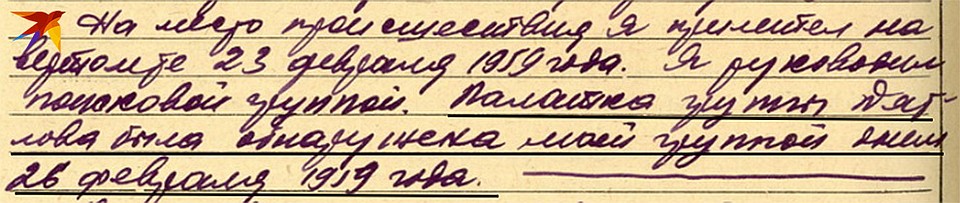 На место происшествия я прилетел на
вертолете 23 февраля 1959 года. Я руководил
поисковой группой. Палатка группы Дят-
лова была обнаружена моей группой днем
26 февраля 1959 года.